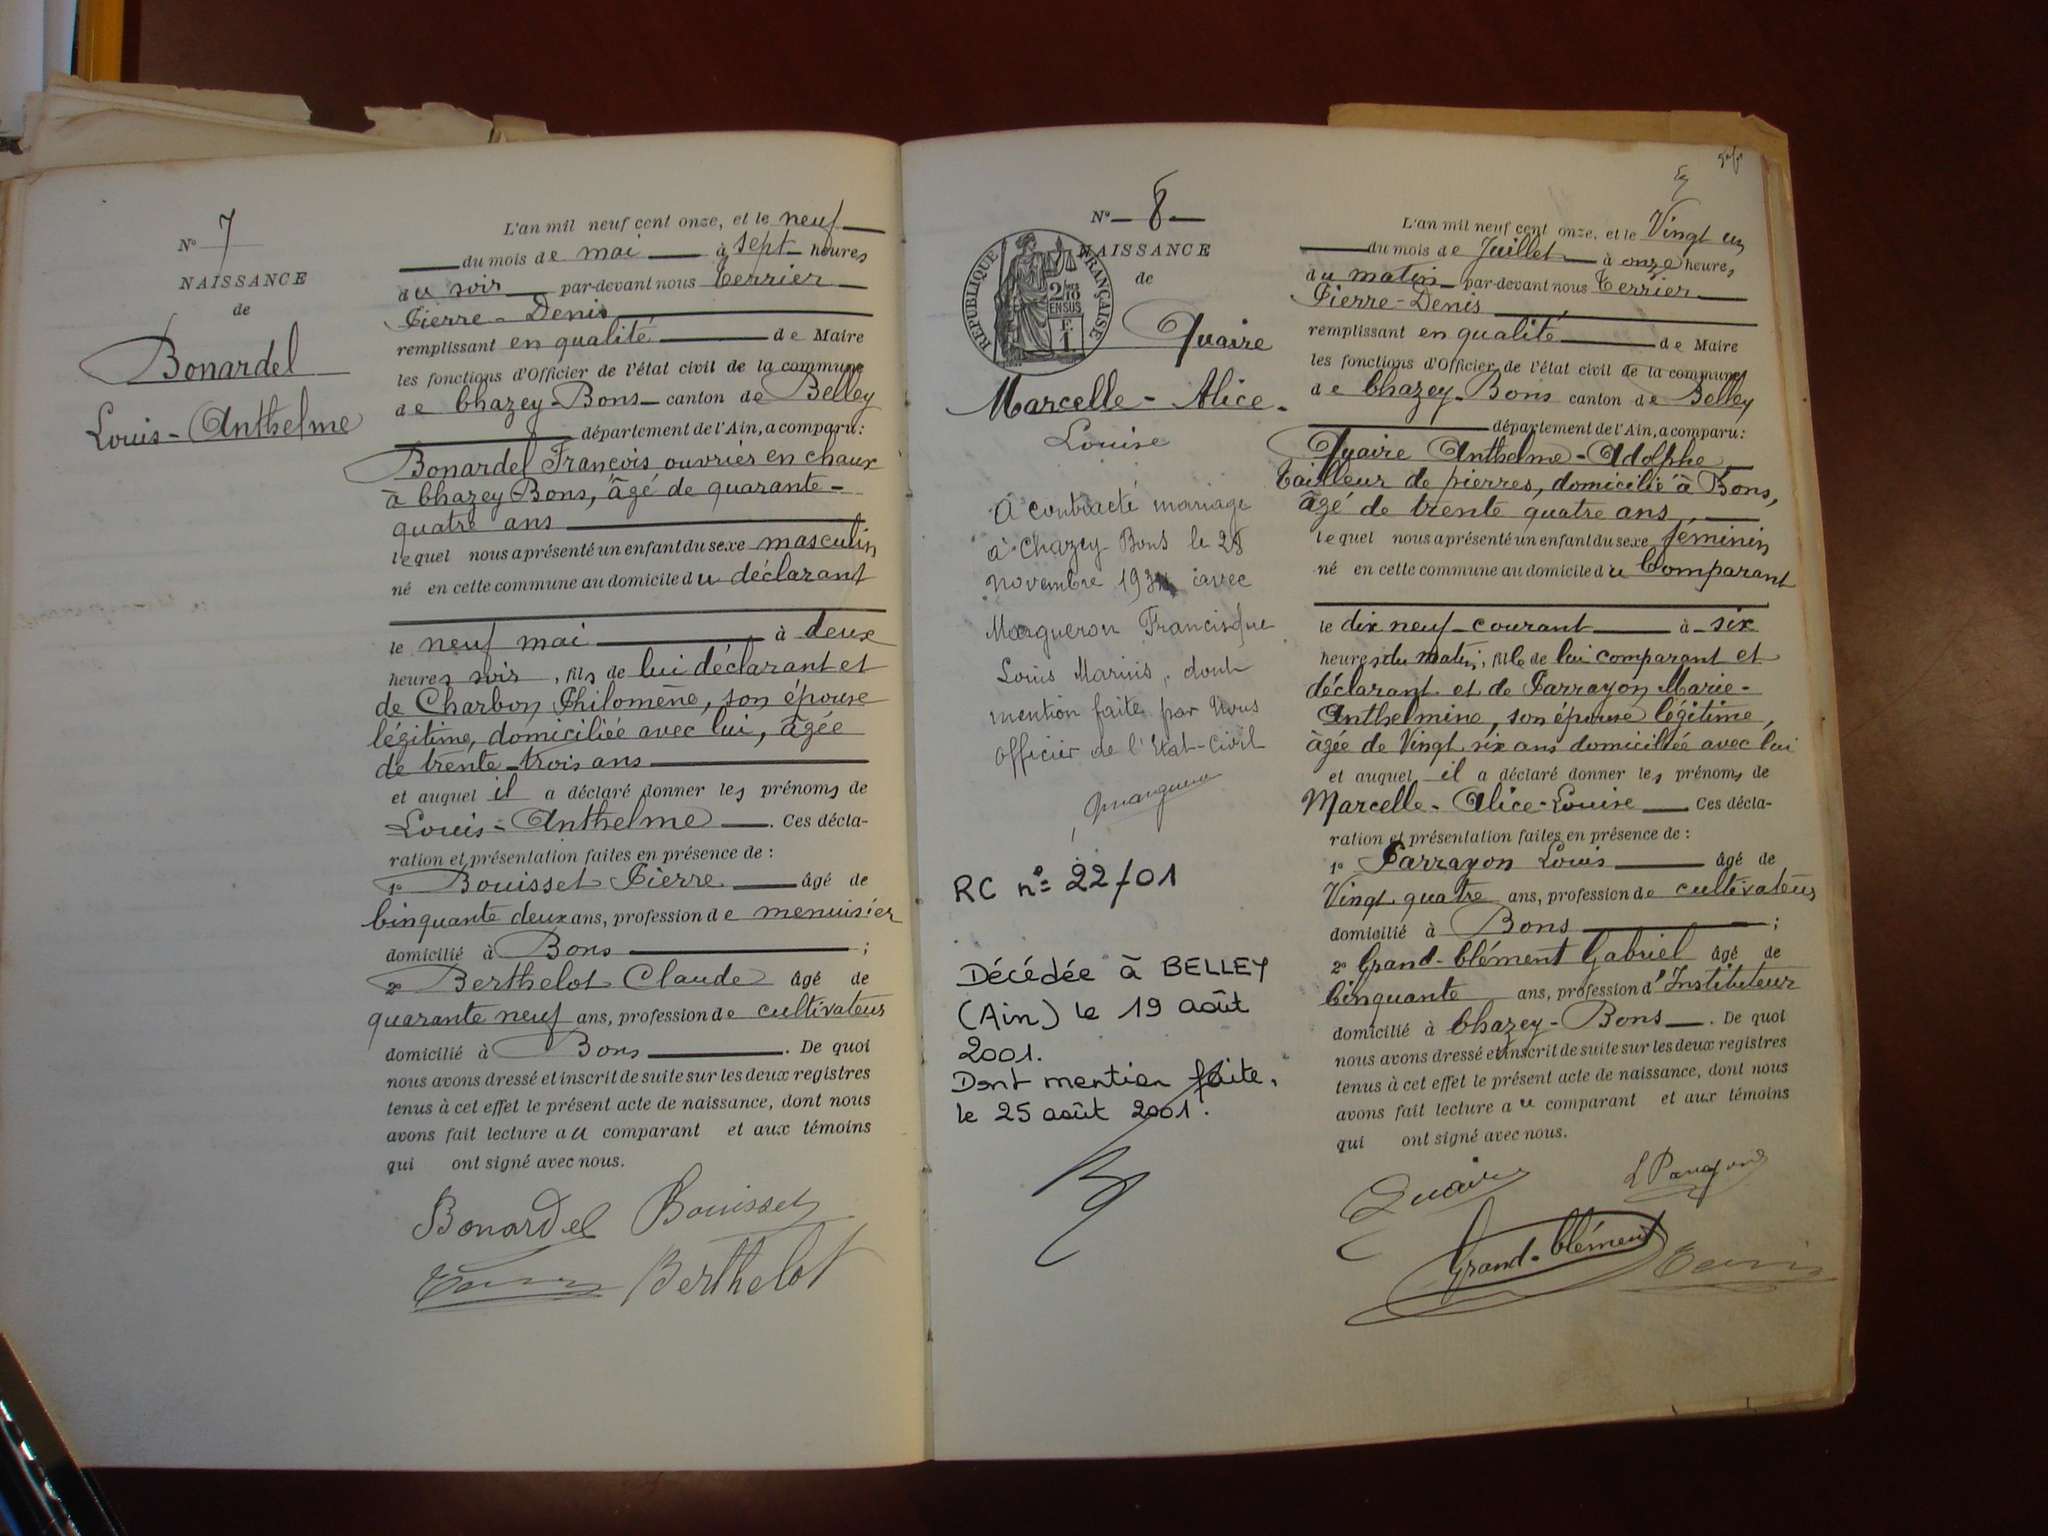 N° 7
NAISSANCE
de
Bonardel
Louis-Anthelme
L'an mil neuf cent onze, et le neuf
du mois de mai à sept heures
du soir par-devant nous Terrier
Pierre-Denis
remplissant en qualité de Maire
les fonctions d'Officier de l'état civil de la commune
de Chazey-Bons canton de Belley
département de l'Ain, a comparu:
Bonardel François ouvrier en chaux
à Chazey-Bons, âgé de quarante-
quatre ans
lequel nous a présenté un enfant du sexe masculin
né en cette commune au domicile du déclarant
le neuf mai à deux
heures soir, fils de lui déclarant et
de Charbon Philomène, son épouse
légitime, domiciliée avec lui, âgée
de trente-trois ans
et auquel il a déclaré donner les prénoms de
Louis-Anthelme. Ces décla-
ration et présentation failes en présence de :
1° Bouisset Pierre âgé de
Cinquante deux ans, profession de menuisier
domicilié à Bons ;
2° Berthelot Claude âgé de
quarante neuf ans, profession de cultivateur
domicilié à Bons. De quoi
nous avons dressé et inscrit de suite sur les deux registres
tenus à cet effet le présent acte de naissance, dont nous
avons fait lecture au comparant et aux témoins
qui ont signé avec nous.
Bonardel Bouisset
Berthelot
N° 8
NAISSANCE
de
RÉPUBLIQUE FRANÇAISE
2/10
EN SUS
F.
1
Quaire
Marcelle-Alice-
Louise
A contracté mariage
à Chazey Bons le 28
novembre avec
Margueron Francisque
Louis Marius, dont
mention faite par Nous
officier de l'Etat-Civil
RC n°= 22/01
Décédée à BELLEY
(Ain) le 19 août
2001.
Dont mention faite,
le 25 août 2001.
L'an mil neuf cent onze, et le Vingt un
du mois de Juillet à onze heures
du matin par-devant nous Terrier
Pierre-Denis
remplissant en qualité de Maire
les fonctions d'Officier de l'état civil de la commune
de Chazey-Bons canton de Belley
département de l'Ain, a comparu:
Quaire Anthelme-Adolphe
Tailleur de pierres, domicilié à Bons,
âgé de trente quatre ans
lequel nous a présenté un enfant du sexe féminin
né en cette commune au domicile du Comparant
le dix neuf courant à six
heures du matin, fille de lui comparant et
déclarant et de Parrayon Marie-
Anthelmine, son épouse légitime,
âgée de Vingt six ans domiciliée avec lui
et auquel il a déclaré donner les prénoms de
Marcelle-Alice-Louise Ces décla-
ration et présentation failes en présence de :
1° Parrayon Louis âgé de
Vingt quatre ans, profession de cultivateur
domicilié à Bons ;
2° Grand-Clément Gabriel âgé de
Cinquante ans, profession d'Instituteur
domicilié à Chazey-Bons. De quoi
nous avons dressé et inscrit de suite sur les deux registres
tenus à cet effet le présent acte de naissance, dont nous
avons fait lecture au comparant et aux témoins
qui ont signé avec nous.
Quaire L Parrayon
Grand-Clément